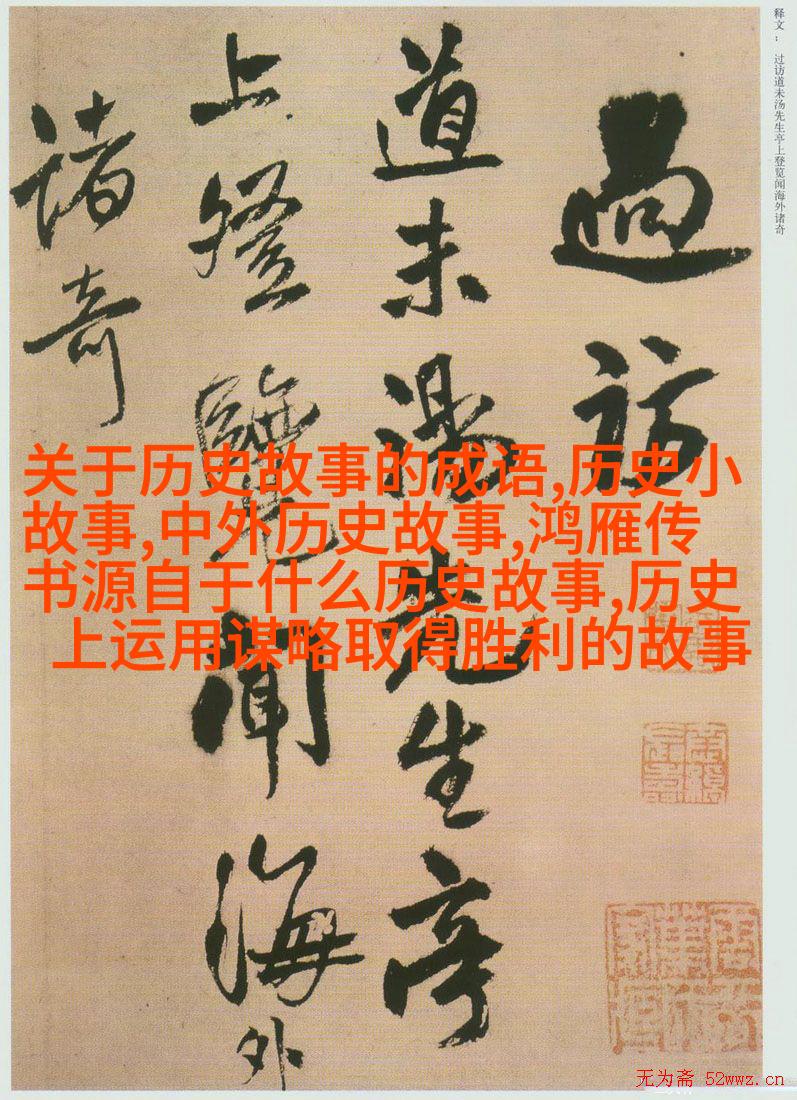 释文： 过访道未汤先生亭上登览闻海外诸奇
過訪
道未湯先生亭
上登覽聞海外
諸奇
关于历史故事的成语,历史小
故事,中外历史故事,鸿雁传
书源自于什么历史故事,历史
上运用谋略取得胜利的故事
无为斋 52wwz.cn